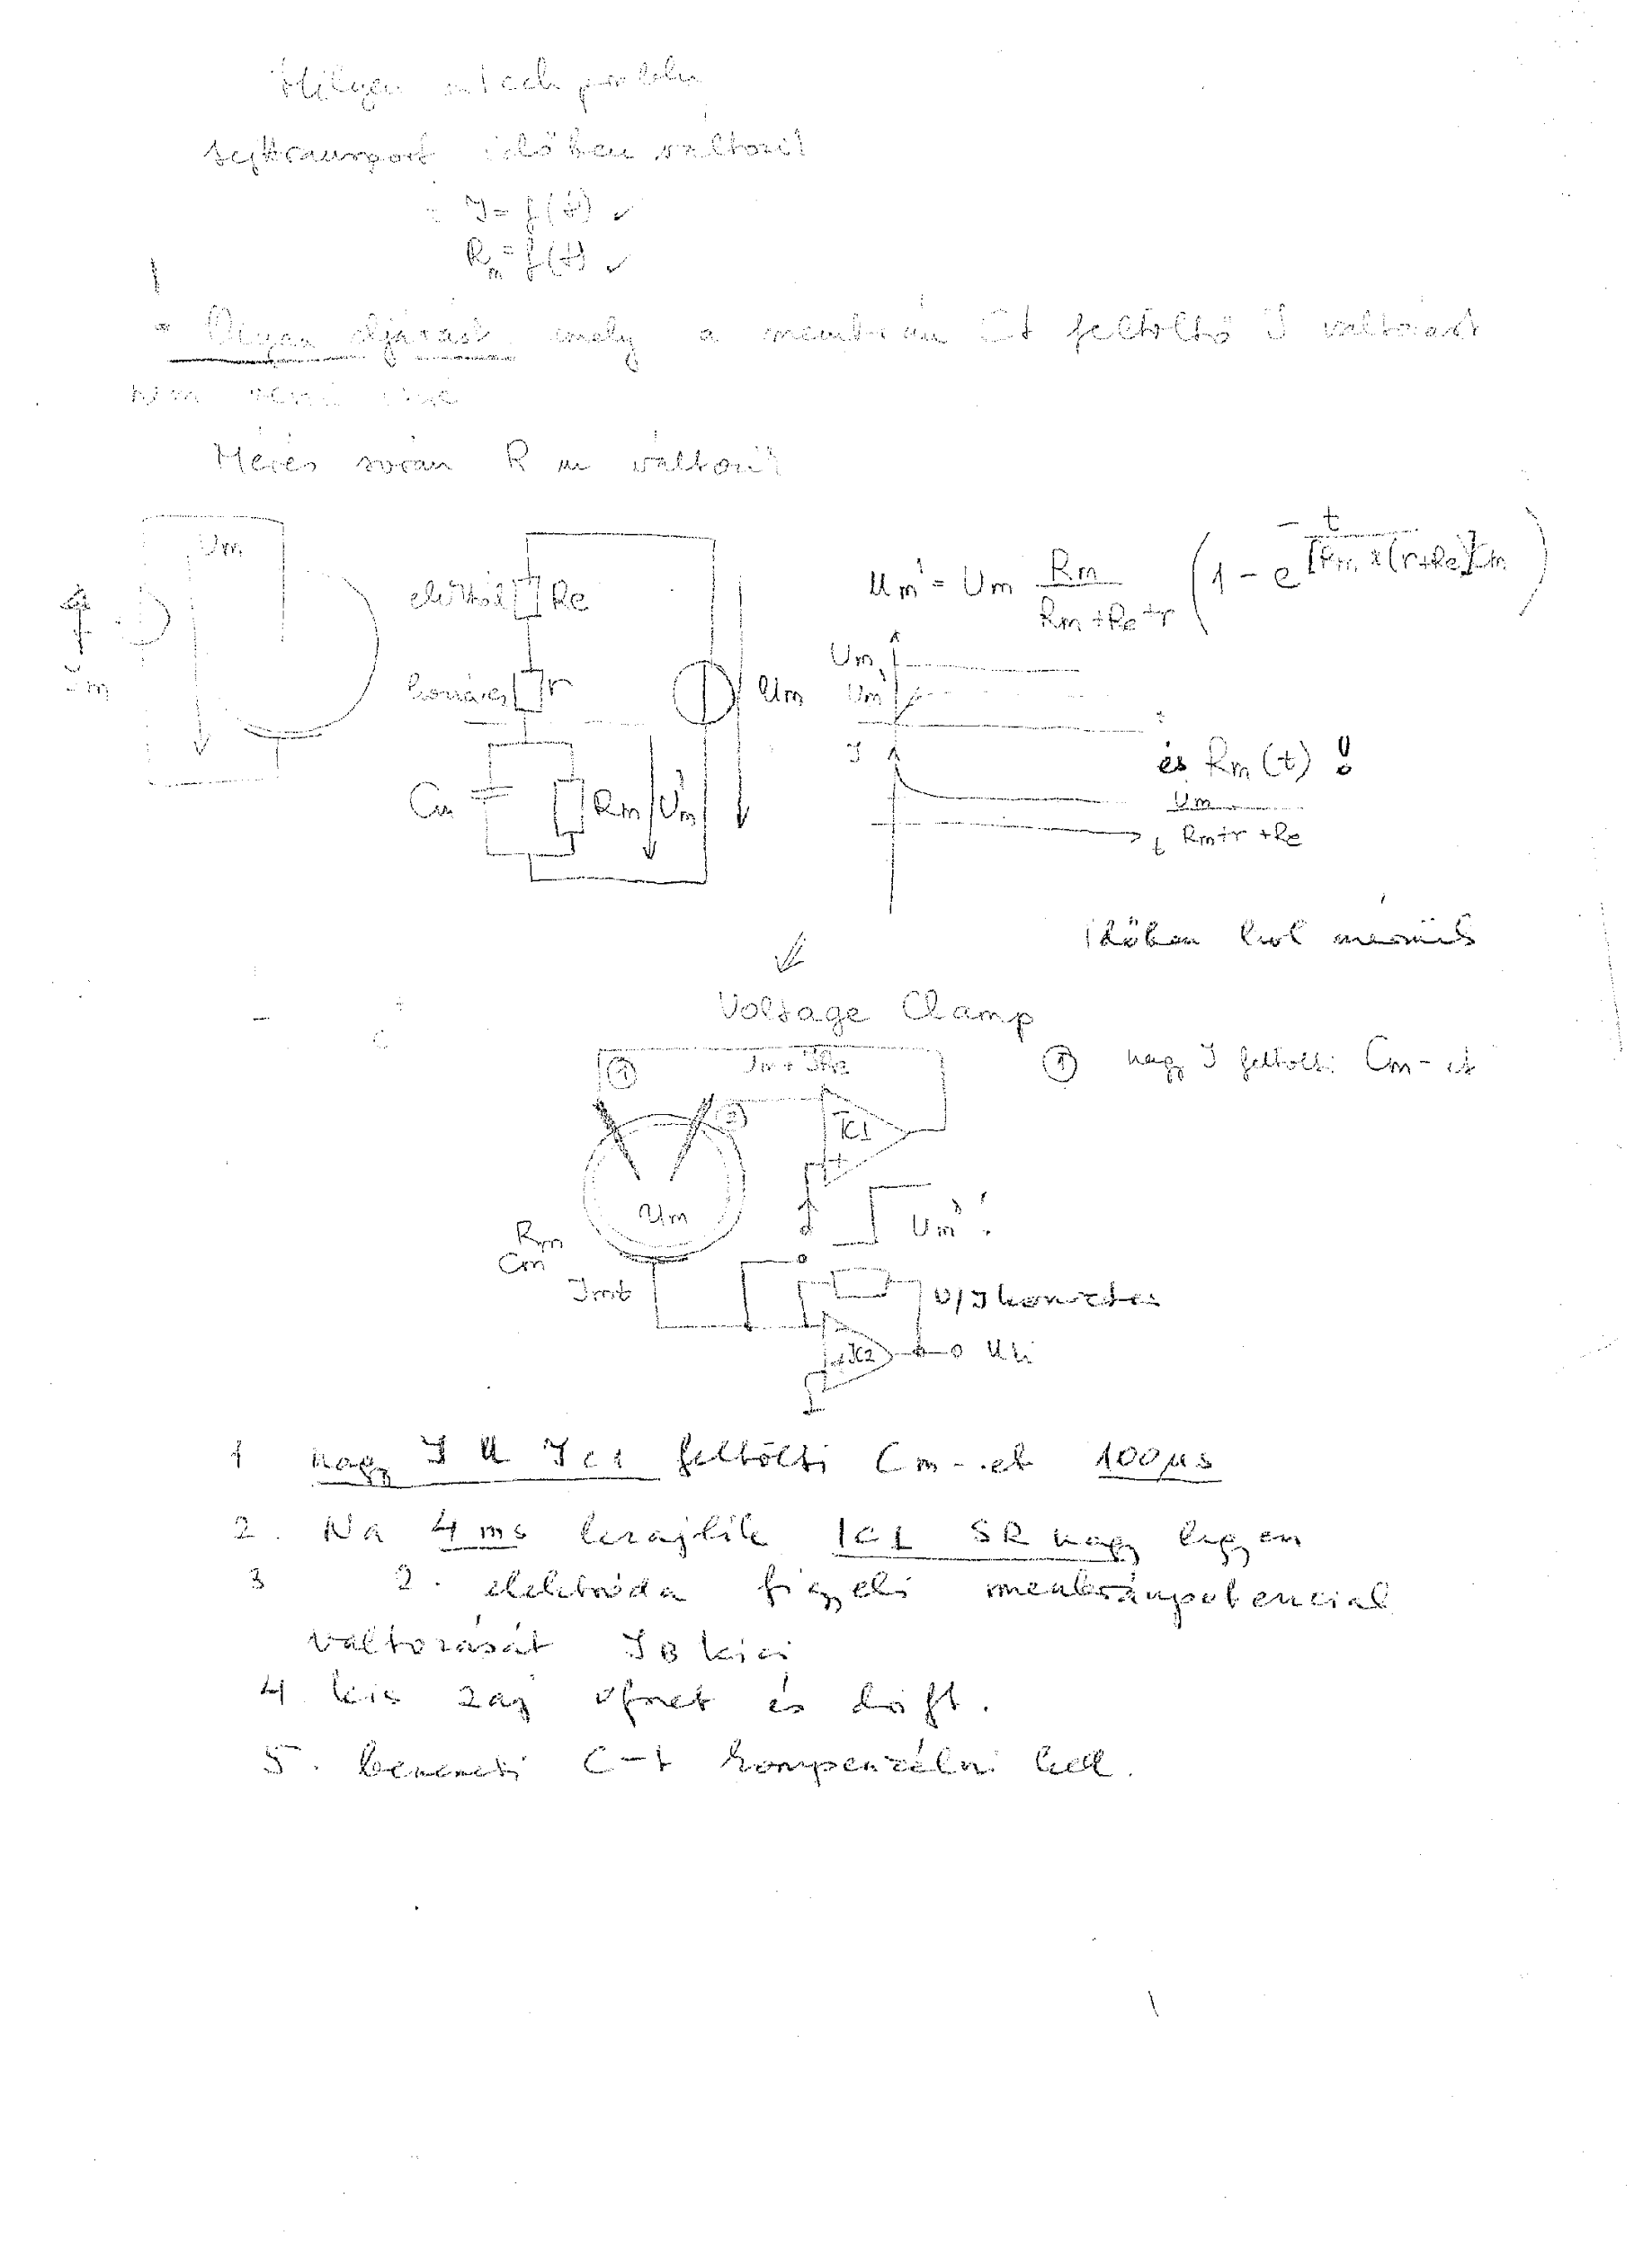 Milyen
sejttranszport időben változik
I = f(t) ✓
Rm = f(t) ✓
- Olyan eljárást mely a membrán Ct feltöltő I változást
nem
Mérés során Rm változik
Um
Im
Re
r
Cm
Rm
Um'
Um
Um' = Um Rm / (Rm + Re + r) (1 - e^(-t / [Rm x (r+Re)]Cm))
Um
Um'
I
t
és Rm(t) !
Um / (Rm + r + Re)
Időben hol mérünk
Voltage Clamp
① nagy I feltölti Cm-et
①
②
IC1
+
Um
Um' !
Rm
Cm
U/I konverter
IC2
Uki
1 nagy I U IC1 feltölti Cm-et 100µs
2. Na 4 ms lezajlik IC1 SR nagy legyen
3 2. elektróda figyeli membránpotencial
változását IB kicsi
4. kis zaj ofszet és drift.
5. bemeneti C-t kompenzálni kell.